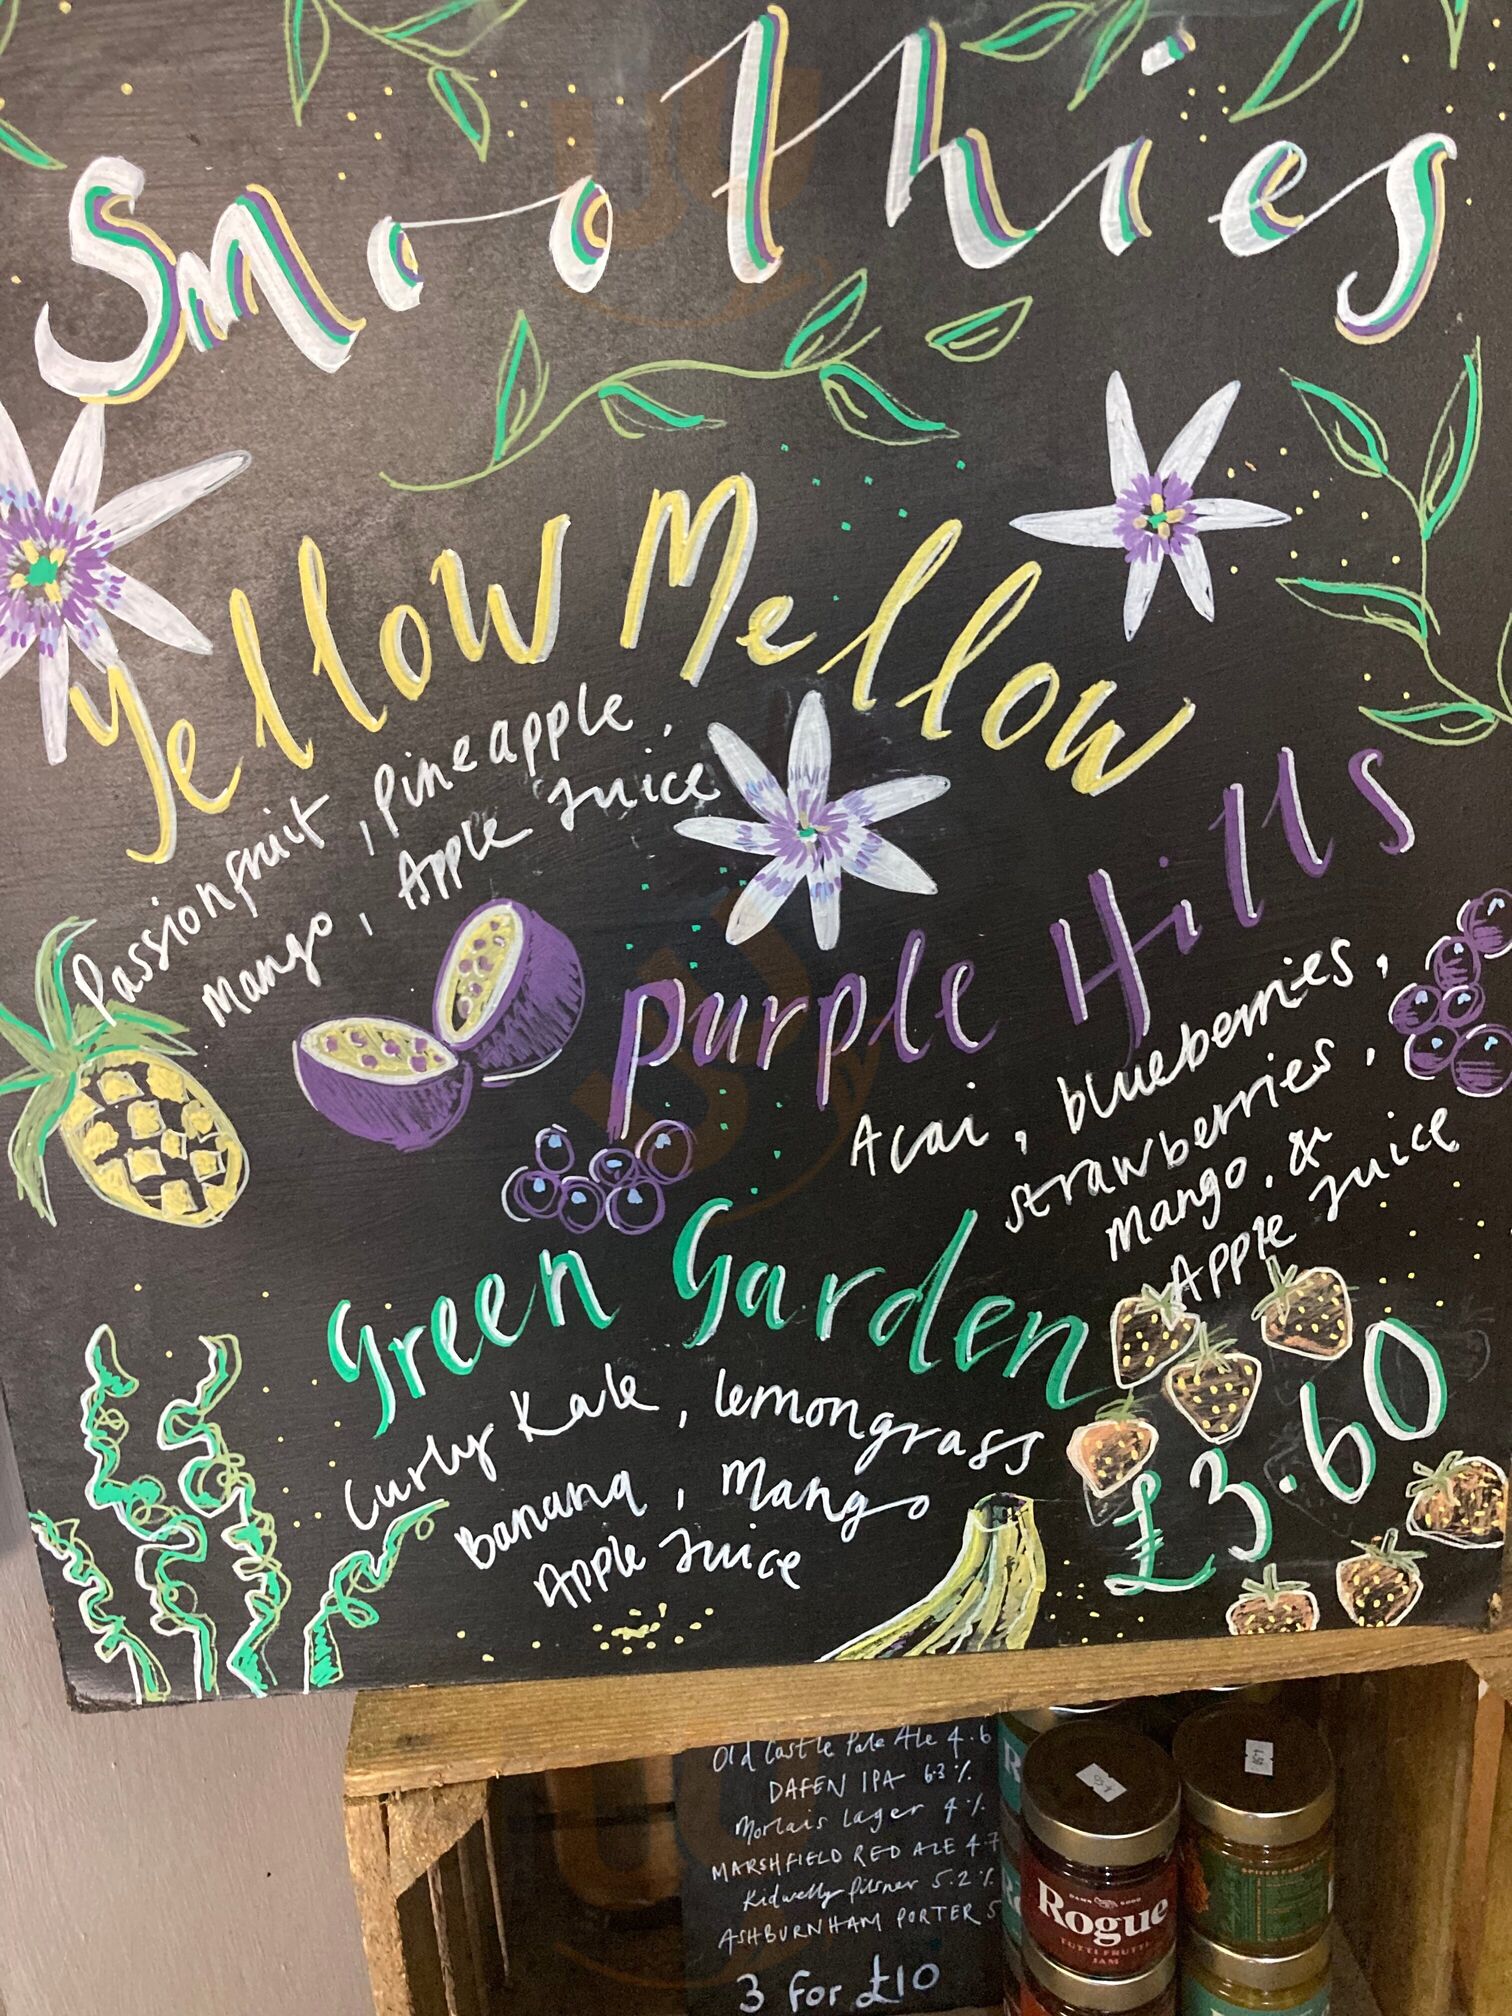 Smoothies
Yellow Mellow
Passionfruit, Pineapple,
Mango, Apple Juice
Purple Hills
Acai, blueberries,
strawberries,
Mango, &
Apple Juice
Green Garden
Curly Kale, lemongrass
Banana, Mango
Apple Juice
£3.60
Old Castle Pale Ale 4.6
DAFEN IPA 6.3%
Morlais Lager 4%
MARSHFIELD RED ALE 4.7
Kidwelly Pilsner 5.2%
ASHBURNHAM PORTER 5
3 for £10
DAMN GOOD
Rogue
TUTTI FRUTTI
JAM